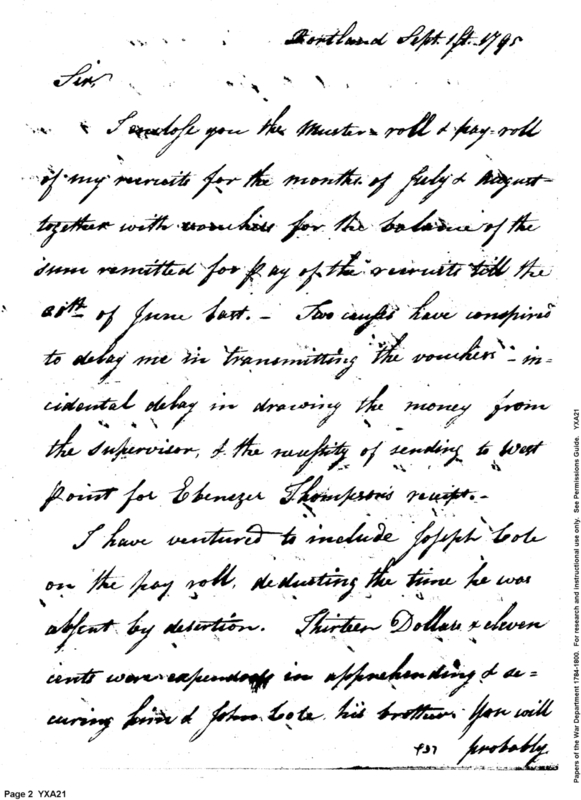 Portland Sept. 1st. 1795
Sir,
I enclose you the muster-roll & pay-roll
of my recruits for the months of July & August
together with vouchers for the balance of the
sum remitted for pay of the recruits till the
30th of June last. – Two causes have conspired
to delay me in transmitting the vouchers – in-
cidental delay in drawing the money from
the supervisor, & the necessity of sending to West
Point for Ebenezer Thompson's receipt. –
I have ventured to include Joseph Cole
on the pay roll, deducting the time he was
absent by desertion. Thirteen Dollars & eleven
cents were expended in apprehending & se=
curing him & John Cole his brother. You will
probably
Page 2 YXA21
Papers of the War Department 1784-1800. For research and instructional use only. See Permissions Guide. YXA21